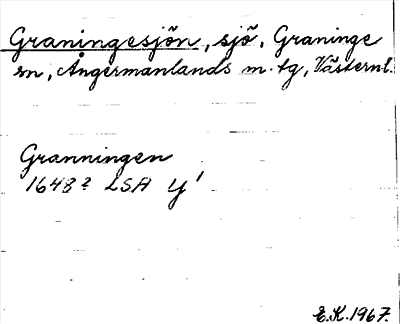 Graningesjön, sjö, Graninge
sn, Ångermanlands m. tg, Västernl.
Granningen
1648? LSA Y'
E.K. 1967.